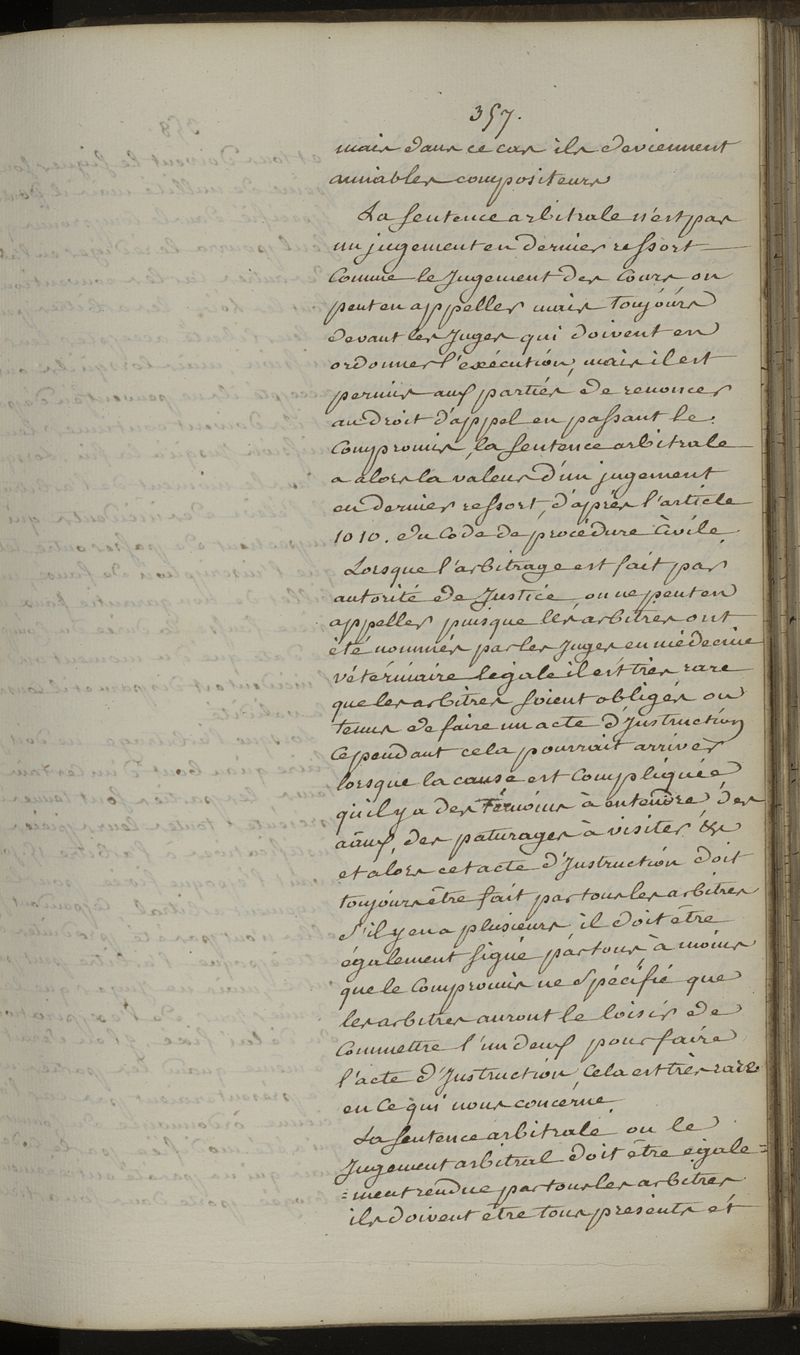 357.
mais dans ce cas ils deviennent
amiables compositeurs
La sentence arbitrale n'est pas
un jugement en dernier ressort
Comme le Jugement des Cours on
peut en appeller mais toujours
devant les Juges qui doivent en
ordonner l'exécution, mais il est
permis aux parties de renoncer
au droit d'appel en passant le
Compromis, la sentence arbitrale
a alors la valeur d'un jugement
en dernier ressort, d'après l'article
1010. du Code de procédure Civile.
Lorsque l'arbitrage est fait par
autorité de Justice on ne peut en
appeller puisque les arbitres ont
été nommés par les Juges en médecine
vétérinaire légale il est très rare
que les arbitres soient obligés ou
tenus de faire un acte d'Instruction
Cependant cela pourrait arriver
lorsque la cause est Compliquée
qu'il y a des Témoins à entendre, des
aux, des paturages à visiter &c
et alors cet acte d'Instruction doit
toujours être fait par tous les arbitres
s'il y en a plusieurs il doit être
également signé par tous à moins
que le Compromis ne spécifié que
les arbitres auront le loisir de
Commettre l'un deux pour faire
l'acte d'Instruction, Cela est très rare
en Ce qui nous concerne.
La sentence arbitrale ou le
Jugement arbitral doit être égale=
=ment rendue par tous les arbitres
ils doivent être tous présents et